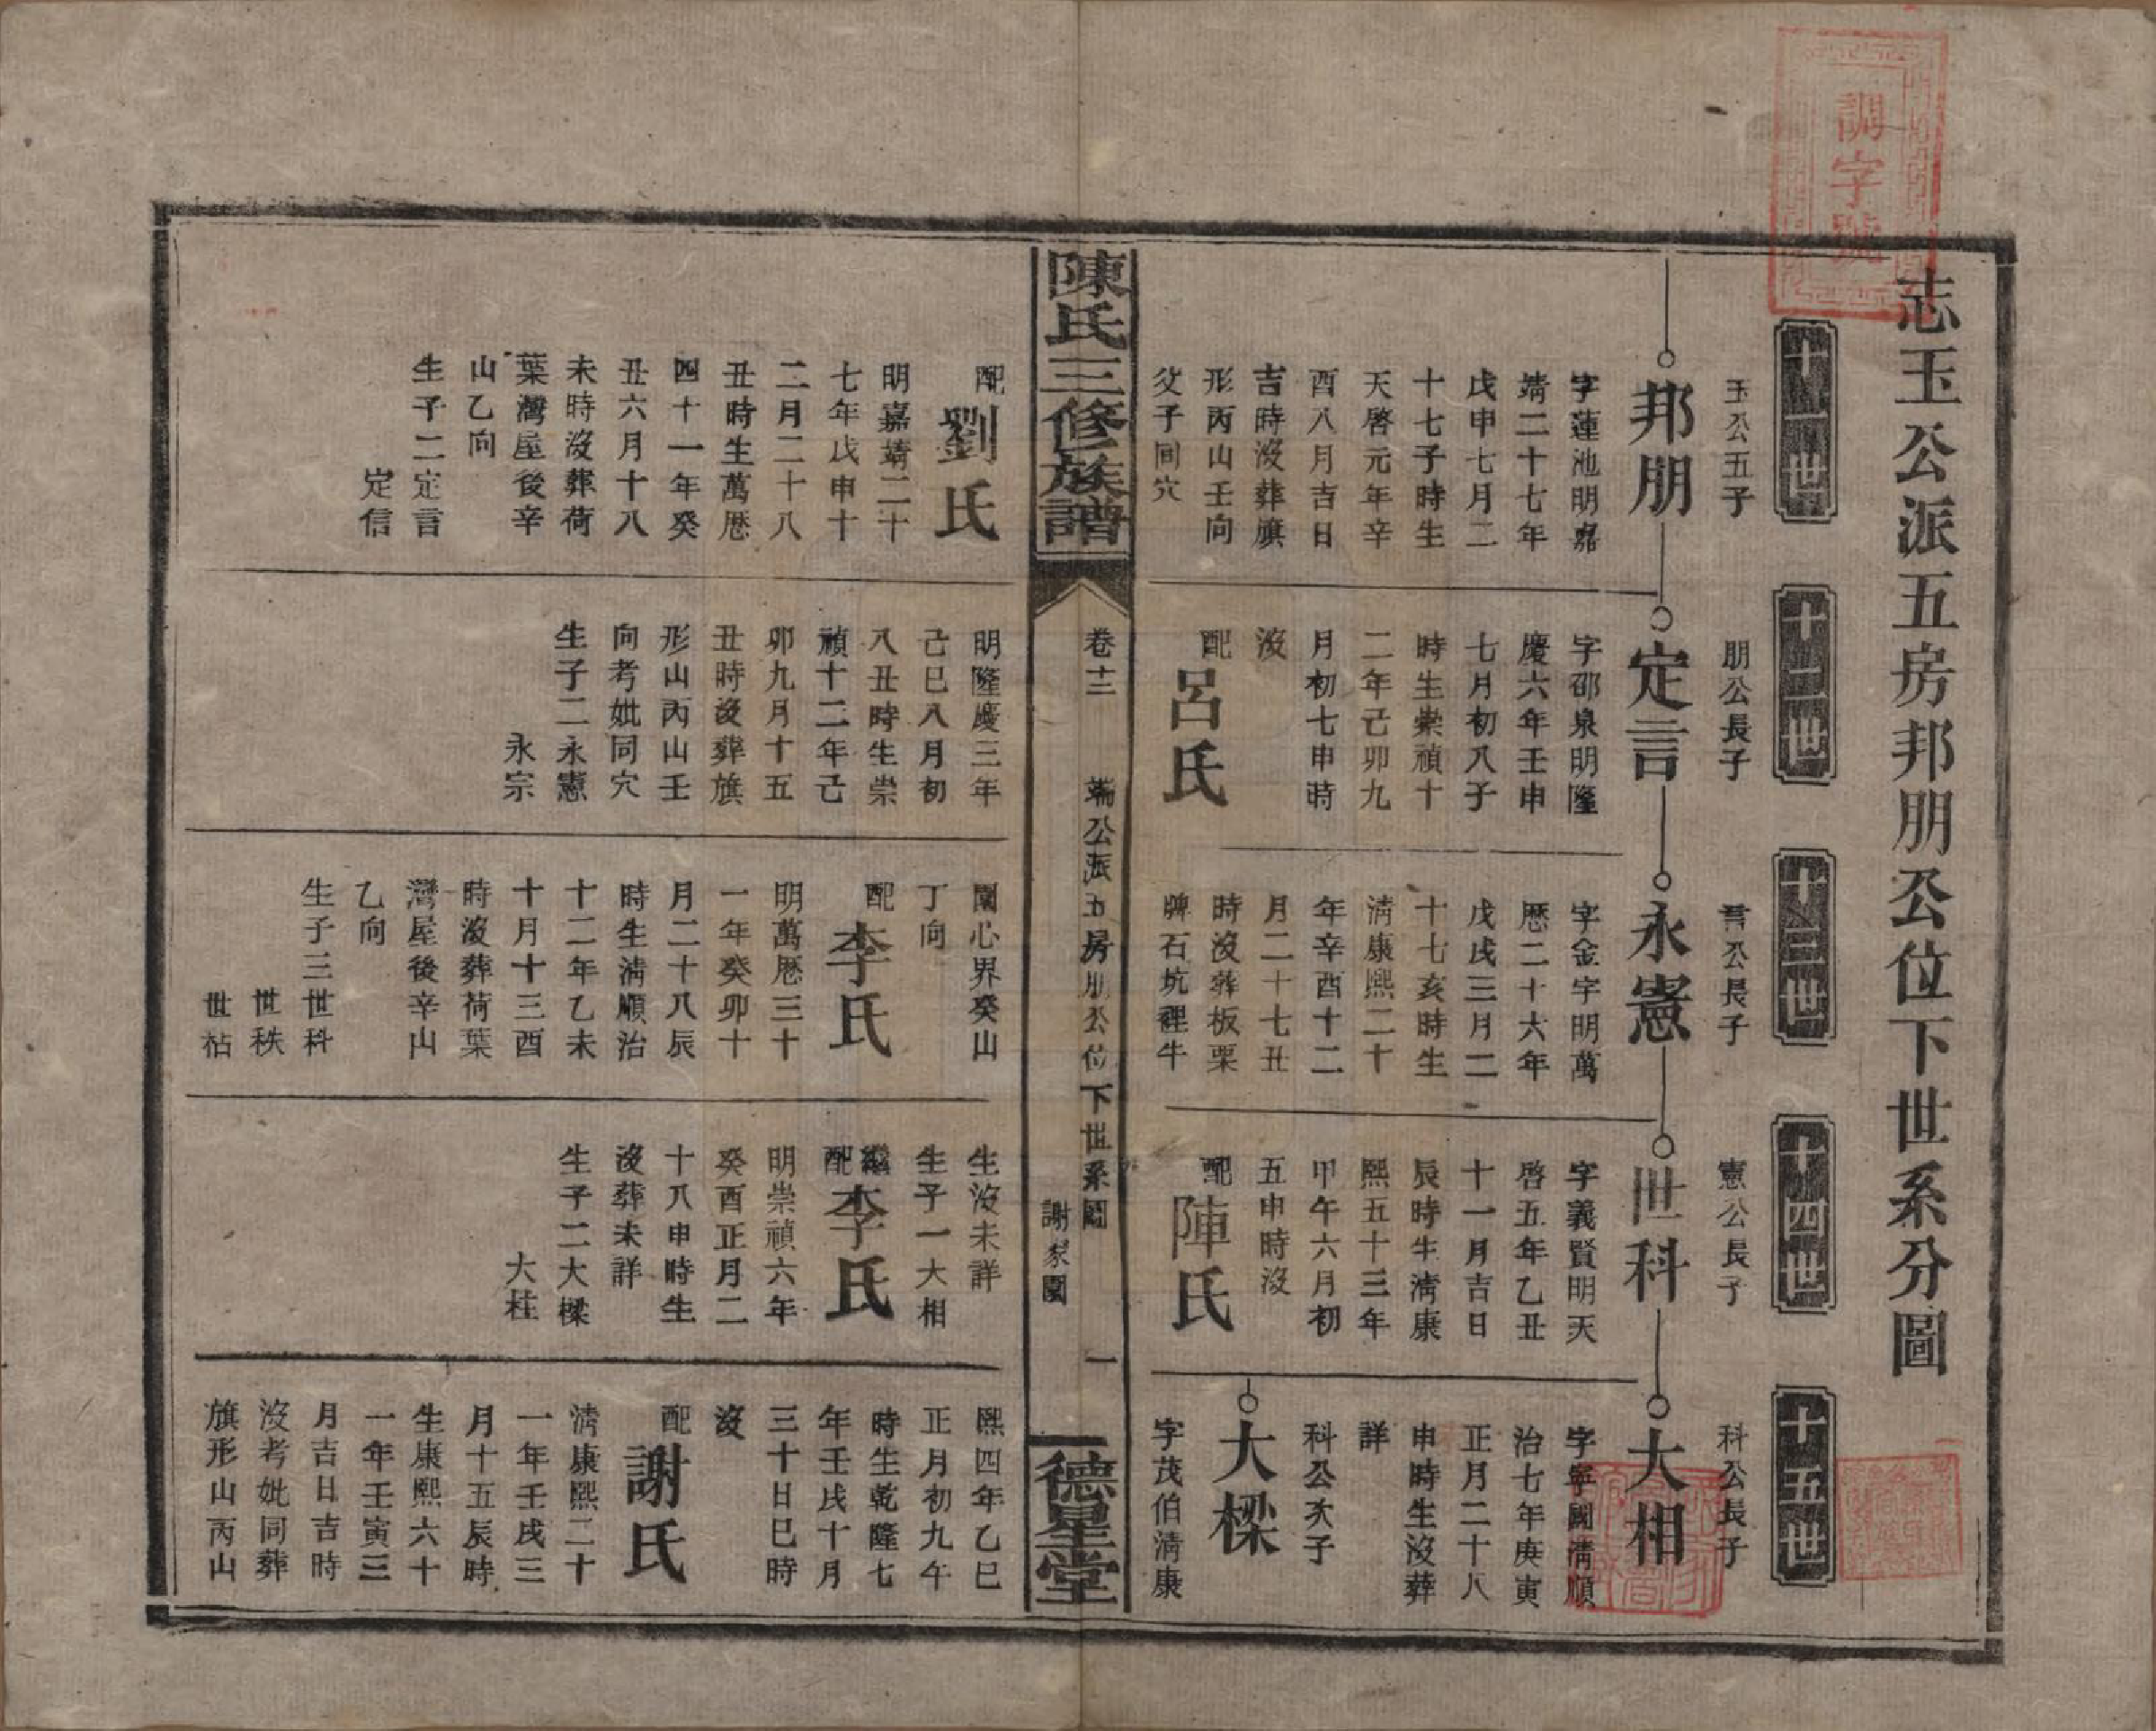 調字號
志玉公派五房邦朋公位下世系分圖
十一世
十二世
十三世
十四世
十五世
玉公五子
邦朋
字蓮池明嘉
靖二十七年
戊申七月二
十七子時生
天啓元年辛
酉八月吉日
吉時沒葬旗
形丙山壬向
父子同穴
配
劉氏
明嘉靖二十
七年戊申十
二月二十八
丑時生萬曆
四十一年癸
丑六月十八
未時沒葬荷
葉灣屋後辛
山乙向
生子二定言
定信
朋公長子
定言
字邵泉明隆
慶六年壬申
七月初八子
時生崇禎十
二年己卯九
月初七申時
沒
配
呂氏
明隆慶三年
己巳八月初
八丑時生崇
禎十二年己
卯九月十五
丑時沒葬旗
形山丙山壬
向考妣同穴
生子二永憲
永宗
言公長子
永憲
字金字明萬
曆二十六年
戊戌三月二
十七亥時生
清康熙二十
年辛酉十二
月二十七丑
時沒葬板栗
牌石坑裡牛
闌心界癸山
丁向
配
李氏
明萬曆三十
一年癸卯十
月二十八辰
時生清順治
十二年乙未
十月十三酉
時沒葬荷葉
灣屋後辛山
乙向
生子三世科
世秩
世祜
憲公長子
世科
字義賢明天
啓五年乙丑
十一月吉日
辰時生清康
熙五十三年
甲午六月初
五申時沒
配
陣氏
生沒未詳
生子一大相
繼配
李氏
明崇禎六年
癸酉正月二
十八申時生
沒葬未詳
生子二大樑
大桂
科公長子
大相
字寧國清順
治七年庚寅
正月二十八
申時生沒葬
詳
科公次子
大樑
字茂伯清康
熙四年乙巳
正月初九午
時生乾隆七
年壬戌十月
三十日巳時
沒
配
謝氏
清康熙二十
一年壬戌三
月十五辰時
生康熙六十
一年壬寅三
月吉日吉時
沒考妣同葬
旗形山丙山
陳氏三修族譜
卷十三
端公派五房朋公位下世系圖
謝家園
一
德星堂